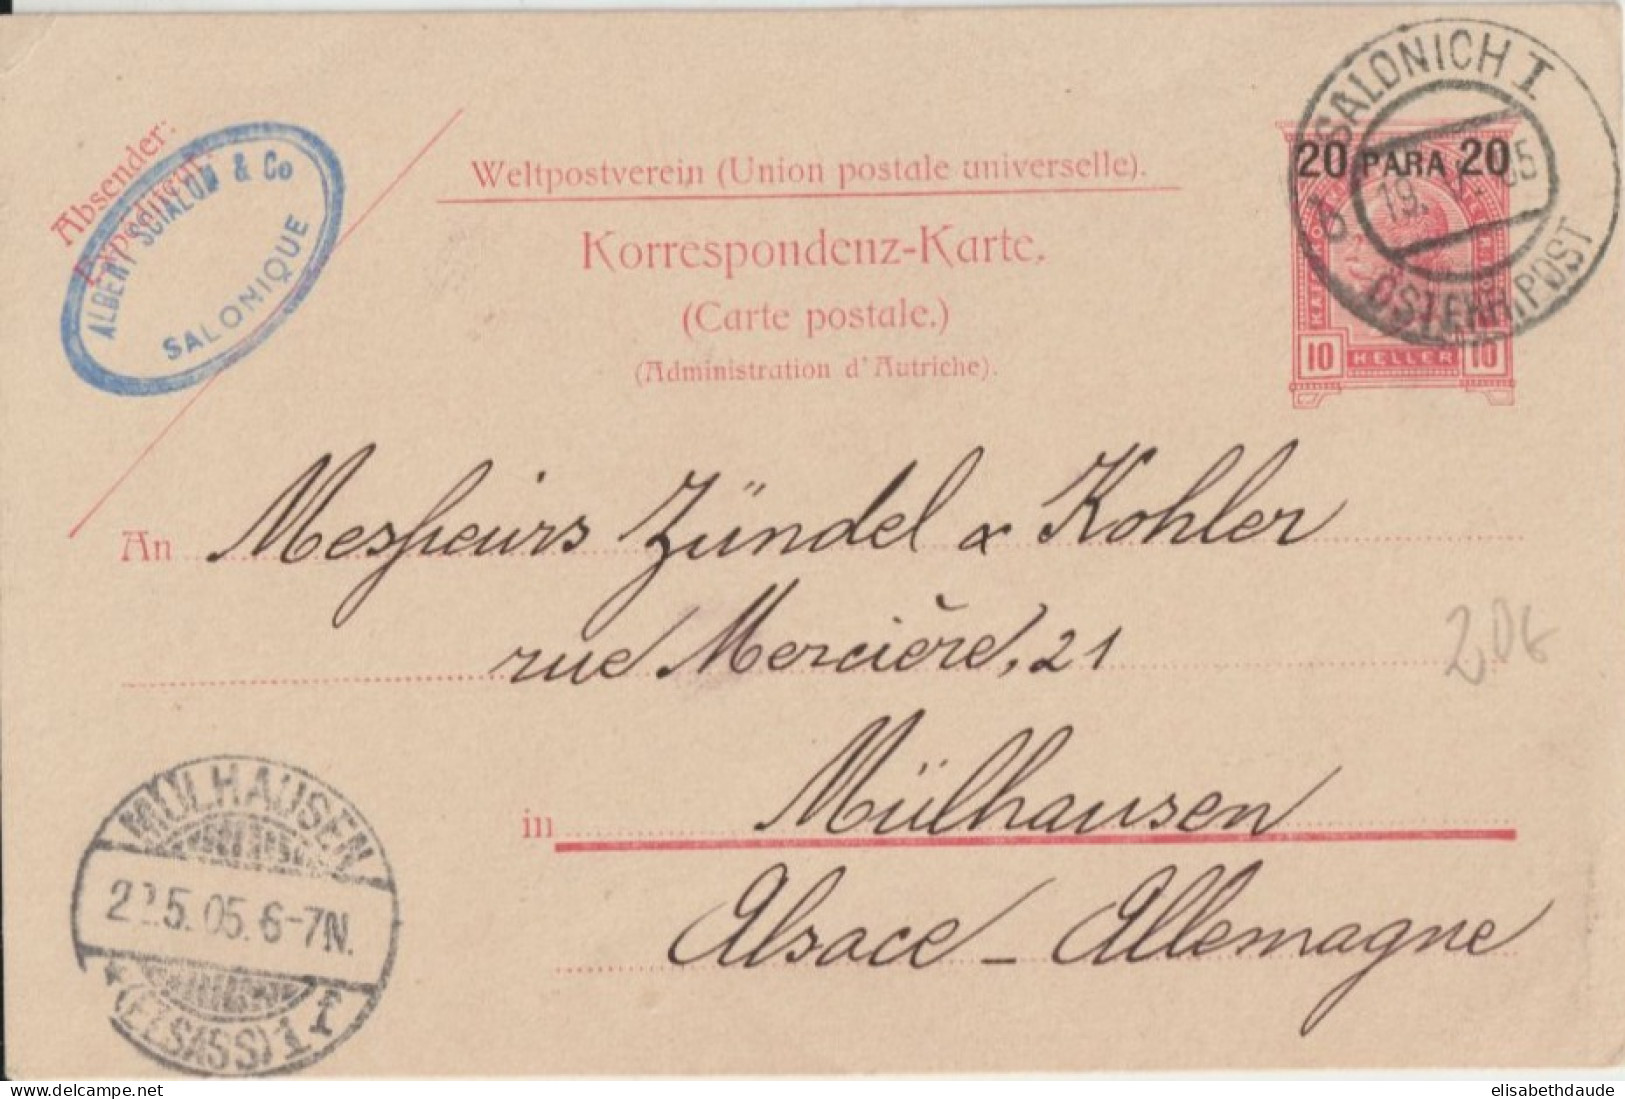 Absender:
Expéditeur:
ALBERT SCIALOM & Co
SALONIQUE
Weltpostverein (Union postale universelle).
Korrespondenz-Karte.
(Carte postale.)
(Administration d'Autriche).
SALONICH I
ÖSTERR.POST
20 PARA 20
10 HELLER 10
An Messieurs Zündel & Kohler
rue Mercière, 21
in Mülhausen
Alsace - Allemagne
MÜLHAUSEN
5.05.6-7N.
* (ELSASS) 1 f
delcampe.net
elisabethdaude